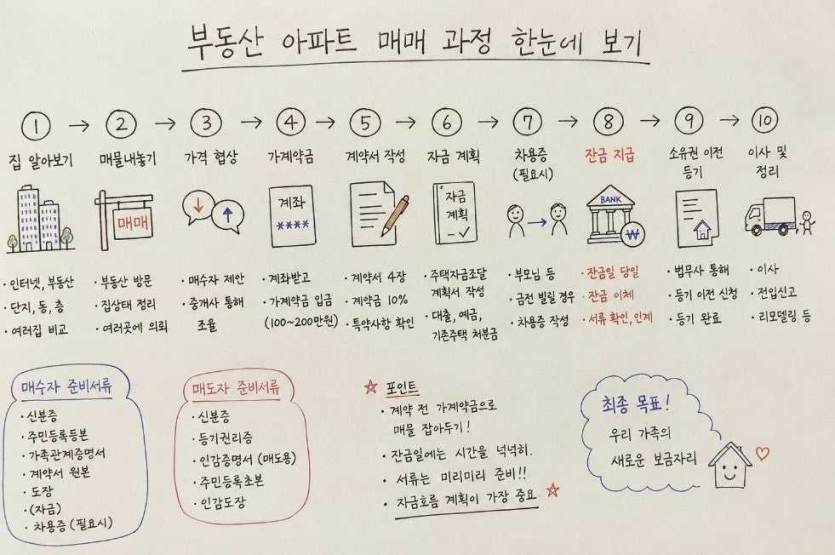 부동산 아파트 매매 과정 한눈에 보기
① → ② → ③ → ④ → ⑤ → ⑥ → ⑦ → ⑧ → ⑨ → ⑩
집 알아보기
매물내놓기
가격 협상
가계약금
계약서 작성
자금 계획
차용증
(필요시)
잔금 지급
소유권 이전
등기
이사 및
정리
매매
계좌
****
자금
계획
BANK
₩
· 인터넷, 부동산
· 단지, 동, 층
· 여러집 비교
· 부동산 방문
· 집상태 정리
· 여러곳에 의뢰
· 매수자 제안
· 중개사 통해
조율
· 계좌받고
· 가계약금 입금
(100~200만원)
· 계약서 4장
· 계약금 10%
· 특약사항 확인
· 주택자금조달
계획서 작성
· 대출, 예금,
기존주택 처분금
· 부모님 등
· 금전 빌릴 경우
· 차용증 작성
· 잔금일 당일
· 잔금 이체
· 서류 확인, 인계
· 법무사 통해
· 등기 이전 신청
· 등기 완료
· 이사
· 전입신고
· 리모델링 등
매수자 준비서류
· 신분증
· 주민등록등본
· 가족관계증명서
· 계약서 원본
· 도장
· (자금)
· 차용증 (필요시)
매도자 준비서류
· 신분증
· 등기권리증
· 인감증명서 (매도용)
· 주민등록초본
· 인감도장
☆ 포인트
· 계약 전 가계약금으로
매물 잡아두기!
· 잔금일에는 시간을 넉넉히.
· 서류는 미리미리 준비!!
· 자금흐름 계획이 가장 중요 ☆
최종 목표!
우리 가족의
새로운 보금자리